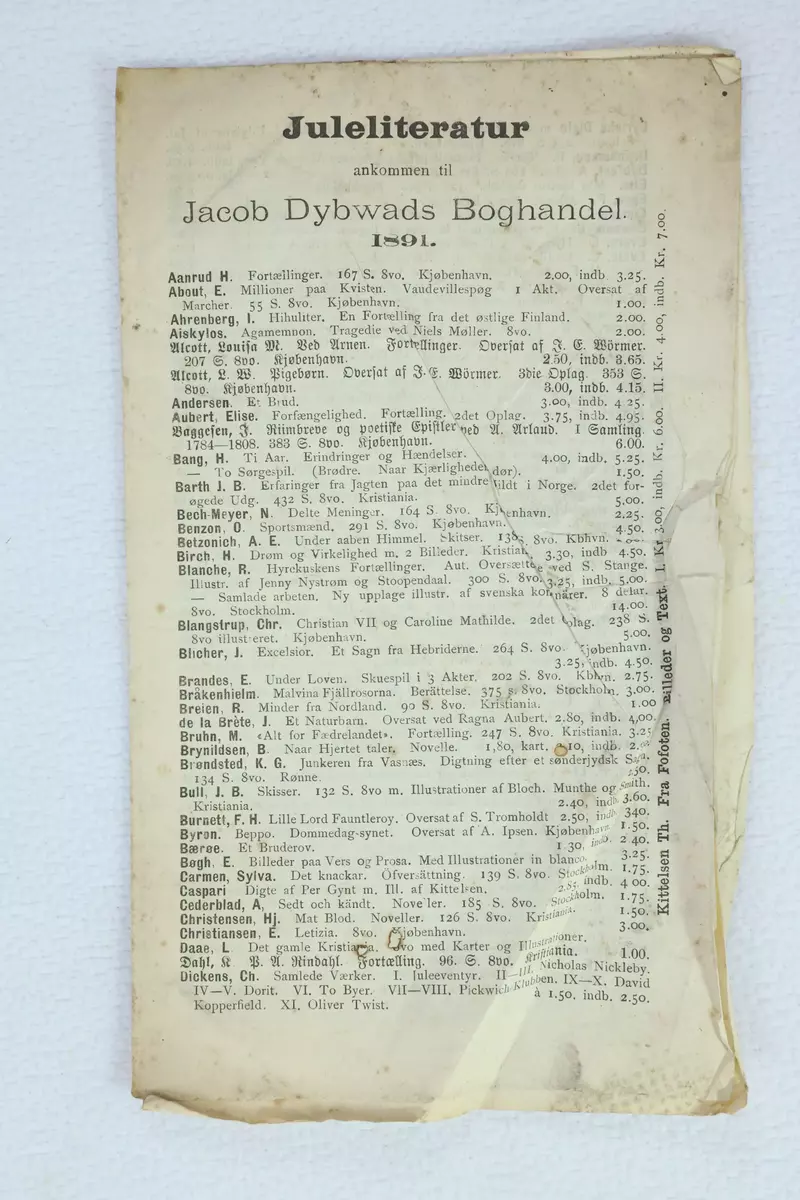 Juleliteratur
ankommen til
Jacob Dybwads Boghandel.
1891.
Aanrud H. Fortællinger. 167 S. 8vo. Kjøbenhavn. 2.00, indb. 3.25.
About, E. Millioner paa Kvisten. Vaudevillespøg 1 Akt. Oversat af
Marcher. 55 S. 8vo. Kjøbenhavn. 1.00.
Ahrenberg, I. Hihuliter. En Fortælling fra det østlige Finland. 2.00.
Aiskylos. Agamemnon. Tragedie ved Niels Møller. 8vo. 2.00.
Alcott, Louisa M. Ved Arnen. Fortællinger. Oversat af J. E. Wörmer.
207 S. 8vo. Kjøbenhavn. 2.50, indb. 3.65.
Alcott, L. W. Pigebørn. Oversat af J. E. Wörmer. 3die Oplag. 353 S.
8vo. Kjøbenhavn. 3.00, indb. 4.15.
Andersen. Et Brud. 3.00, indb. 4 25.
Aubert, Elise. Forfængelighed. Fortælling. 2det Oplag. 3.75, indb. 4.95.
Baggesen, J. Riimbreve og poetiske Epistler ved A. Arlaud. I Samling.
1784—1808. 383 S. 8vo. Kjøbenhavn. 6.00.
Bang, H. Ti Aar. Erindringer og Hændelser. 4.00, indb. 5.25.
— To Sørgespil. (Brødre. Naar Kjærligheden dør). 1.50.
Barth J. B. Erfaringer fra Jagten paa det mindre Vildt i Norge. 2det for-
øgede Udg. 432 S. 8vo. Kristiania. 5,00.
Bech-Meyer, N. Delte Meninger. 164 S. 8vo. Kjøbenhavn. 2.25.
Benzon, O. Sportsmænd. 291 S. 8vo. Kjøbenhavn. 4.50.
Betzonich, A. E. Under aaben Himmel. Skitser. 8vo. Kbhvn.
Birch, H. Drøm og Virkelighed m. 2 Billeder. Kristian. 3.30, indb 4.50.
Blanche, R. Hyrekuskens Fortællinger. Aut. Oversættelse ved S. Stange.
Illustr. af Jenny Nystrøm og Stoopendaal. 300 S. 8vo. 3.25, indb. 5.00.
— Samlade arbeten. Ny upplage illustr. af svenska konstnärer. 8 delar.
8vo. Stockholm. 14.00.
Blangstrup, Chr. Christian VII og Caroline Mathilde. 2det Oplag. 238 S.
8vo illustreret. Kjøbenhavn. 5.00.
Blicher, J. Excelsior. Et Sagn fra Hebriderne. 264 S. 8vo. Kjøbenhavn.
3.25, indb. 4.50.
Brandes, E. Under Loven. Skuespil i 3 Akter. 202 S. 8vo. Kbhvn. 2.75.
Bråkenhielm. Malvina Fjällrosorna. Berättelse. 375 S. 8vo. Stockholm. 3.00.
Breien, R. Minder fra Nordland. 90 S. 8vo. Kristiania. 1.00
de la Brète, J. Et Naturbarn. Oversat ved Ragna Aubert. 2.80, indb. 4,00.
Bruhn, M. «Alt for Fædrelandet». Fortælling. 247 S. 8vo. Kristiania. 3.25
Brynildsen, B. Naar Hjertet taler. Novelle. 1,80, kart. 2.10, indb.
Brøndsted, K. G. Junkeren fra Vasnæs. Digtning efter et sønderjydsk Sagn.
134 S. 8vo. Rønne.
Bull, J. B. Skisser. 132 S. 8vo m. Illustrationer af Bloch. Munthe og Smith.
Kristiania. 2.40, indb. 3.60.
Burnett, F. H. Lille Lord Fauntleroy. Oversat af S. Tromholdt 2.50, indb 340.
Byron. Beppo. Dommedag-synet. Oversat af A. Ipsen. Kjøbenhavn 1.50.
Bærøe. Et Bruderov. 1 30, indb. 2 40.
Bøgh, E. Billeder paa Vers og Prosa. Med Illustrationer in blanco. 3.25.
Carmen, Sylva. Det knackar. Öfversättning. 139 S. 8vo. Stockholm. 1.75.
Caspari Digte af Per Gynt m. Ill. af Kittelsen. 2.85, indb. 4 00.
Cederblad, A, Sedt och kändt. Noveller. 185 S. 8vo. Stockholm. 1.75.
Christensen, Hj. Mat Blod. Noveller. 126 S. 8vo. Kristiania. 1.50.
Christiansen, E. Letizia. 8vo. Kjøbenhavn. 3.00.
Daae, L Det gamle Kristiania. 8vo med Karter og Illustrationer.
Dahl, K P. A. Rindahl. Fortælling. 96. S. 8vo. Kristiania. 1.00.
Dickens, Ch. Samlede Værker. I. Juleeventyr. II—III Nicholas Nickleby.
IV—V. Dorit. VI. To Byer. VII—VIII. Pickwick Klubben. IX—X. David
Kopperfield. XI. Oliver Twist. à 1.50. indb. 2.50.
Kittelsen Th. Fra Fofoten. Billeder og Text. I. Kr 3.00, indb. Kr. 6.00. II. Kr. 4.00, indb. Kr. 7.00.